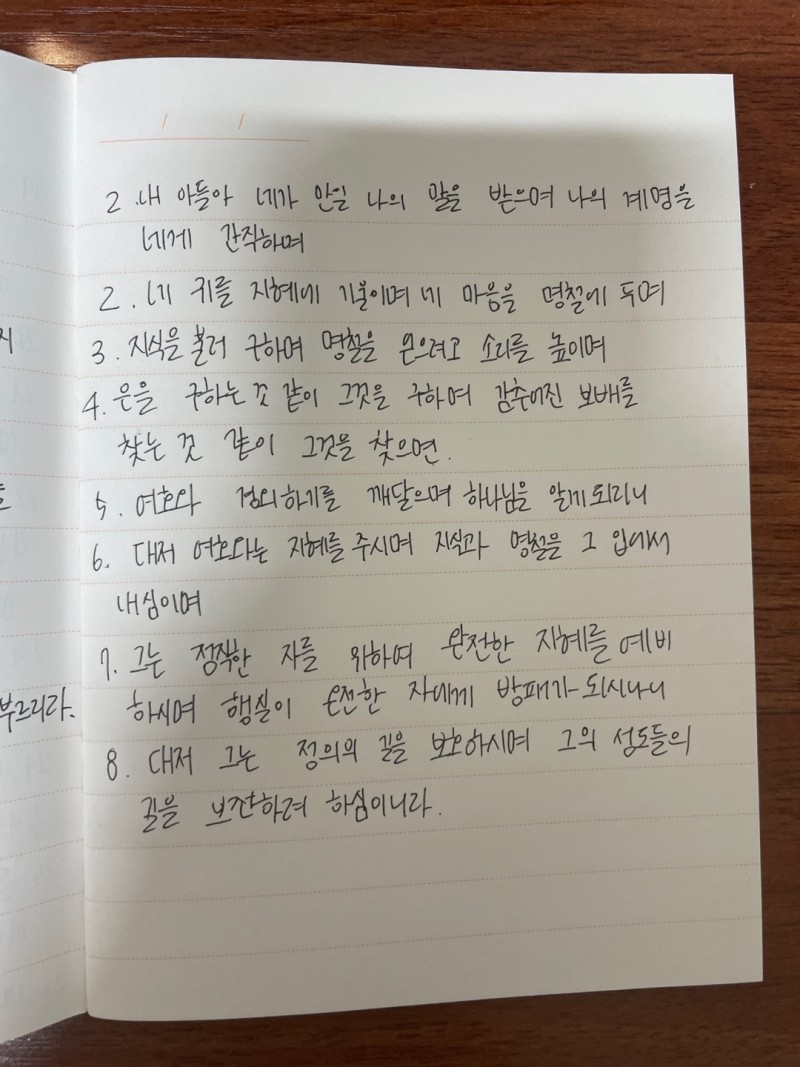 2 내 아들아 네가 만일 나의 말을 받으며 나의 계명을
네게 간직하며
2. 네 귀를 지혜에 기울이며 네 마음을 명철에 두며
3. 지식을 불러 구하며 명철을 얻으려고 소리를 높이며
4. 은을 구하는 것 같이 그것을 구하며 감추어진 보배를
찾는 것 같이 그것을 찾으면.
5. 여호와 경외하기를 깨달으며 하나님을 알게 되리니
6. 대저 여호와는 지혜를 주시며 지식과 명철을 그 입에서
내심이며
7. 그는 정직한 자를 위하여 완전한 지혜를 예비
하시며 행실이 온전한 자에게 방패가 되시나니
8. 대저 그는 정의의 길을 보호하시며 그의 성도들의
길을 보전하려 하심이니라.
부르리라.